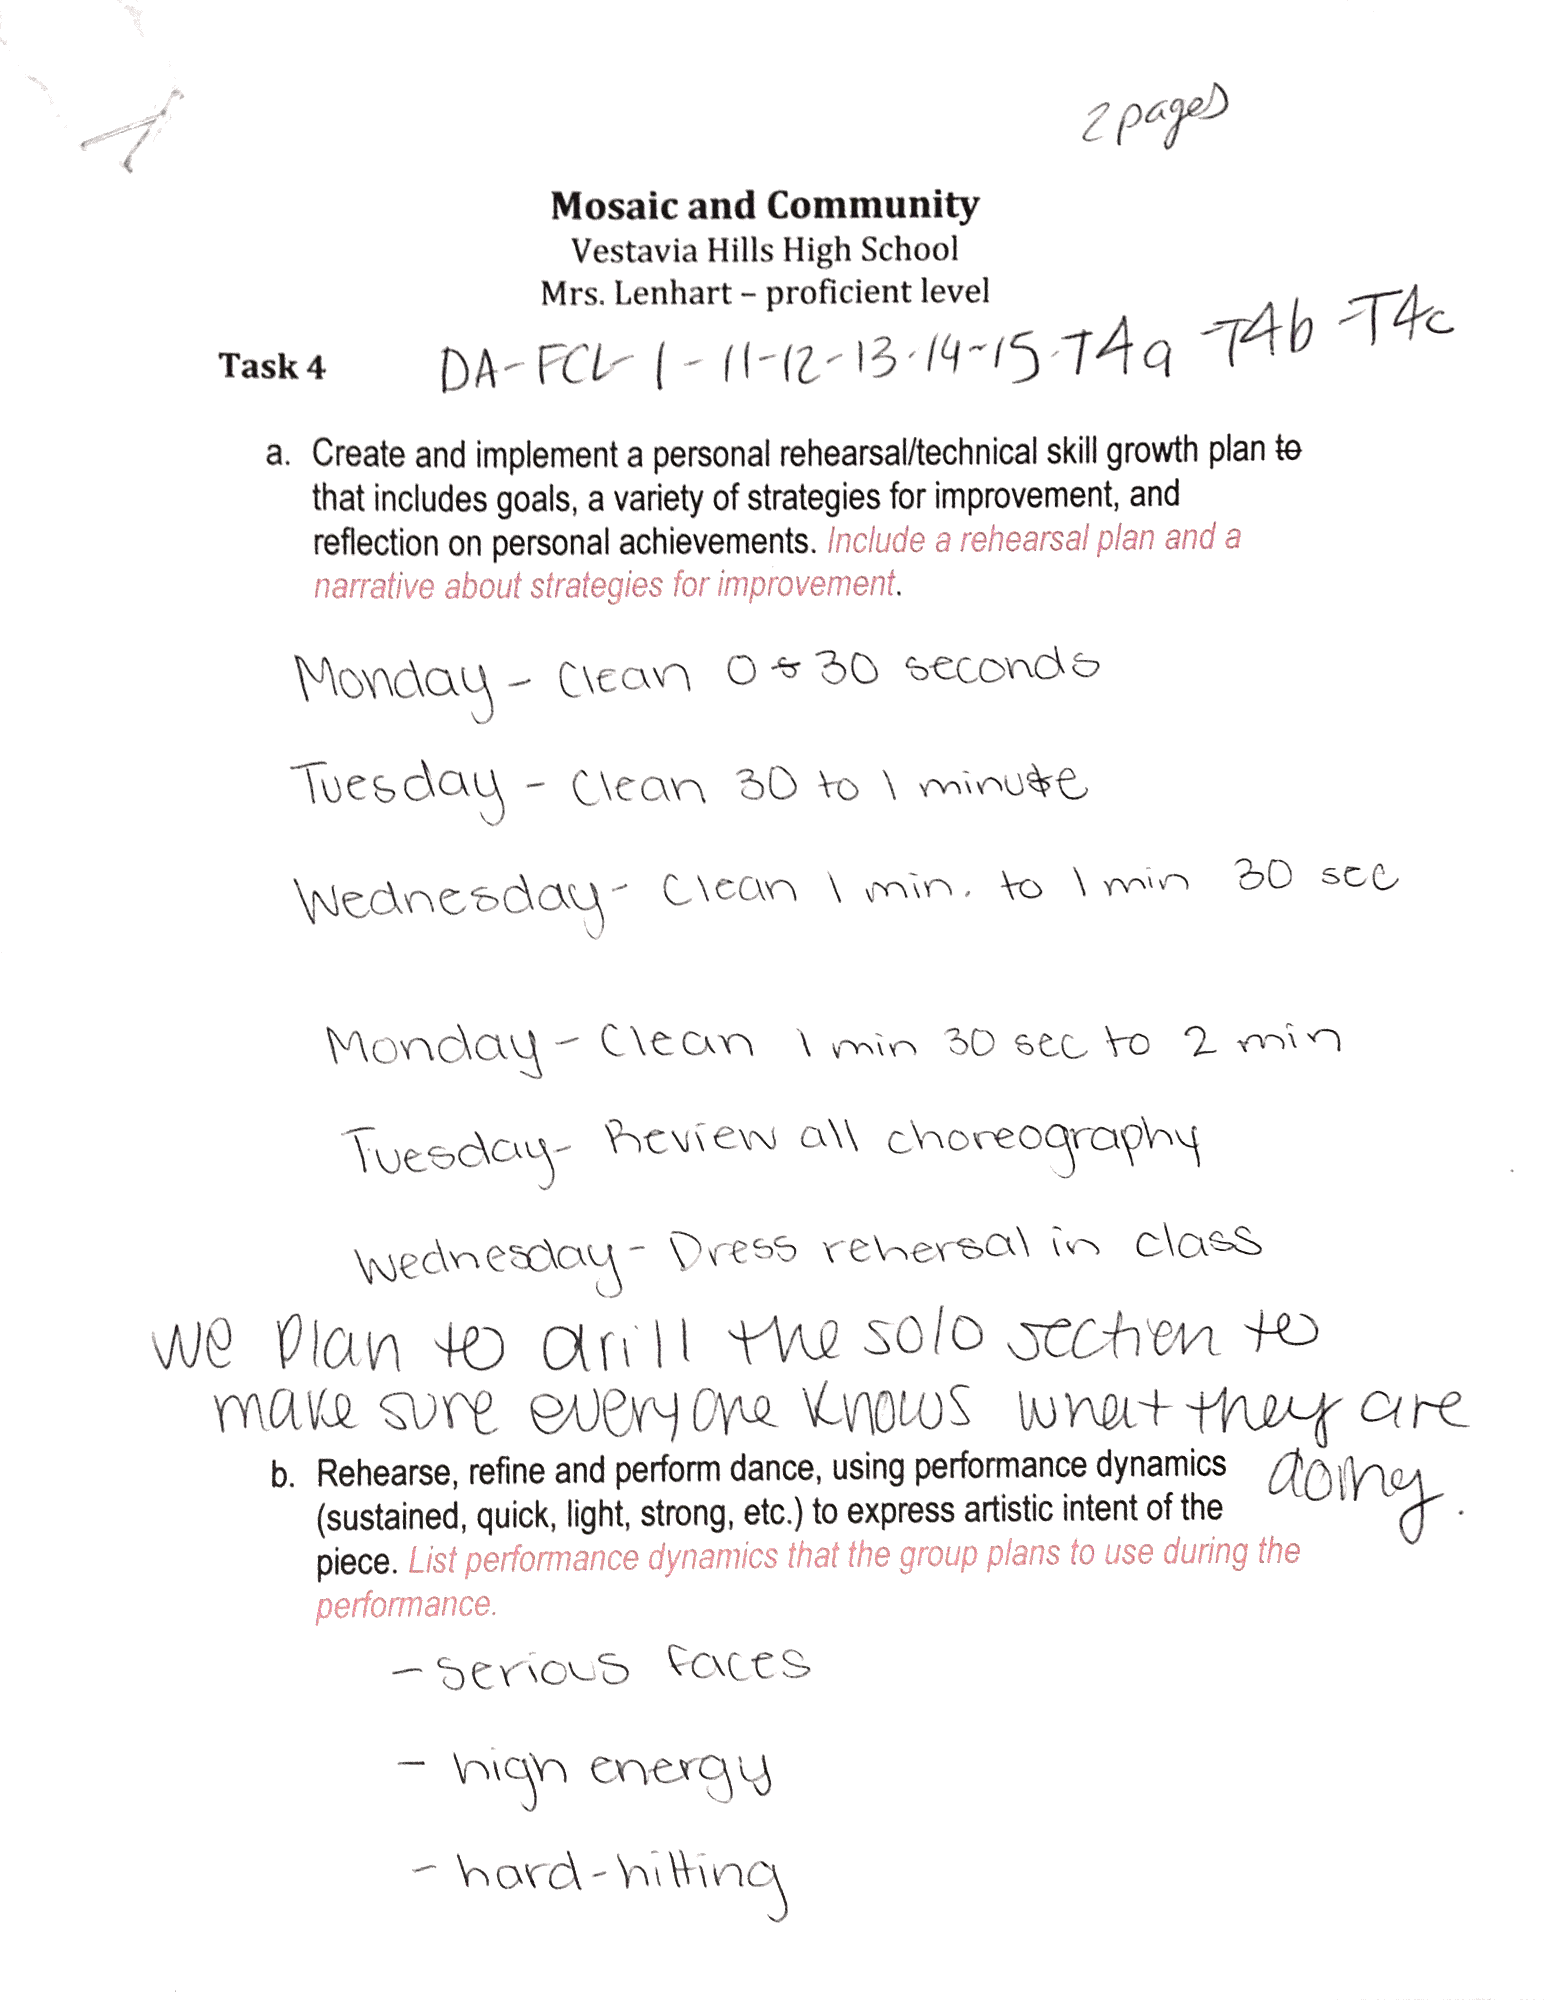 2 pages
Mosaic and Community
Vestavia Hills High School
Mrs. Lenhart – proficient level
Task 4 DA-FCL-1-11-12-13-14-15-T4a-T4b-T4c
a. Create and implement a personal rehearsal/technical skill growth plan to
that includes goals, a variety of strategies for improvement, and
reflection on personal achievements. Include a rehearsal plan and a
narrative about strategies for improvement.
Monday - Clean 0 to 30 seconds
Tuesday - Clean 30 to 1 minute
Wednesday - Clean 1 min. to 1 min 30 sec
Monday - Clean 1 min 30 sec to 2 min
Tuesday - Review all choreography
Wednesday - Dress rehersal in class
we plan to drill the solo section to
make sure everyone knows what they are
doing.
b. Rehearse, refine and perform dance, using performance dynamics
(sustained, quick, light, strong, etc.) to express artistic intent of the
piece. List performance dynamics that the group plans to use during the
performance.
- serious faces
- high energy
- hard-hitting